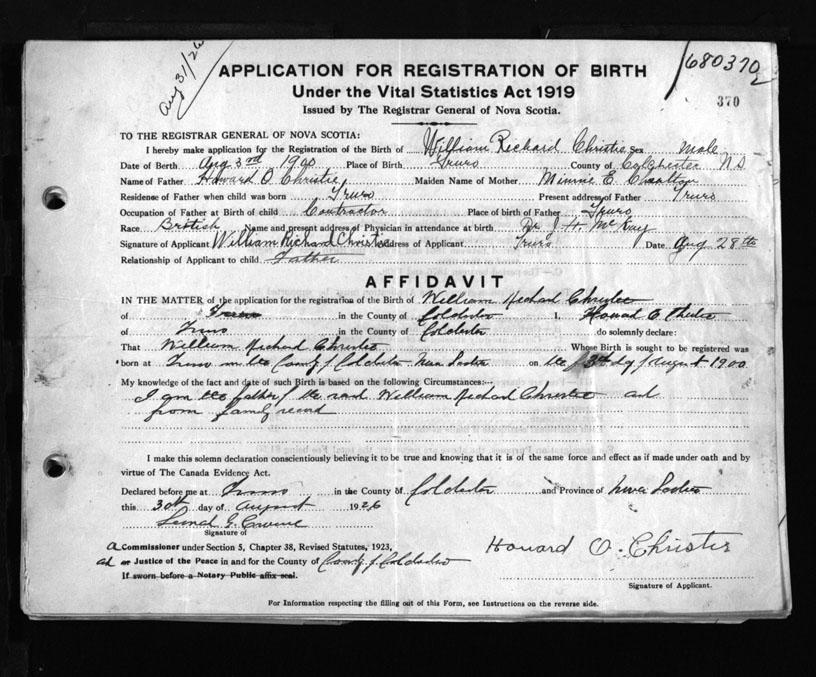 Aug 31/26
680370
APPLICATION FOR REGISTRATION OF BIRTH
Under the Vital Statistics Act 1919
370
Issued by The Registrar General of Nova Scotia.
TO THE REGISTRAR GENERAL OF NOVA SCOTIA:
I hereby make application for the Registration of the Birth of William Richard Christie Sex Male
Date of Birth Aug 3rd 1900 Place of Birth Truro County of Colchester N S
Name of Father Howard O Christie Maiden Name of Mother Minnie E
Residence of Father when child was born Truro Present address of Father Truro
Occupation of Father at Birth of child Contractor Place of birth of Father Truro
Race British Name and present address of Physician in attendance at birth Dr J H McKay
Signature of Applicant William Richard Christie Address of Applicant Truro Date Aug 28th
Relationship of Applicant to child Father
AFFIDAVIT
IN THE MATTER of the application for the registration of the Birth of William Richard Christie
of Truro in the County of Colchester I, Howard O Christie
of Truro in the County of Colchester do solemnly declare:
That William Richard Christie Whose Birth is sought to be registered was
born at Truro in the County of Colchester Nova Scotia on the 3rd day of August 1900
My knowledge of the fact and date of such Birth is based on the following Circumstances:--
I am the father of the said William Richard Christie and
from family record
I make this solemn declaration conscientiously believing it to be true and knowing that it is of the same force and effect as if made under oath and by
virtue of The Canada Evidence Act.
Declared before me at Truro in the County of Colchester and Province of Nova Scotia
this 30th day of August 1926
Signature of
a Commissioner under Section 5, Chapter 38, Revised Statutes, 1923,
Howard O. Christie
or Justice of the Peace in and for the County of County of Colchester
If sworn before a Notary Public affix seal.
Signature of Applicant.
For Information respecting the filling out of this Form, see Instructions on the reverse side.